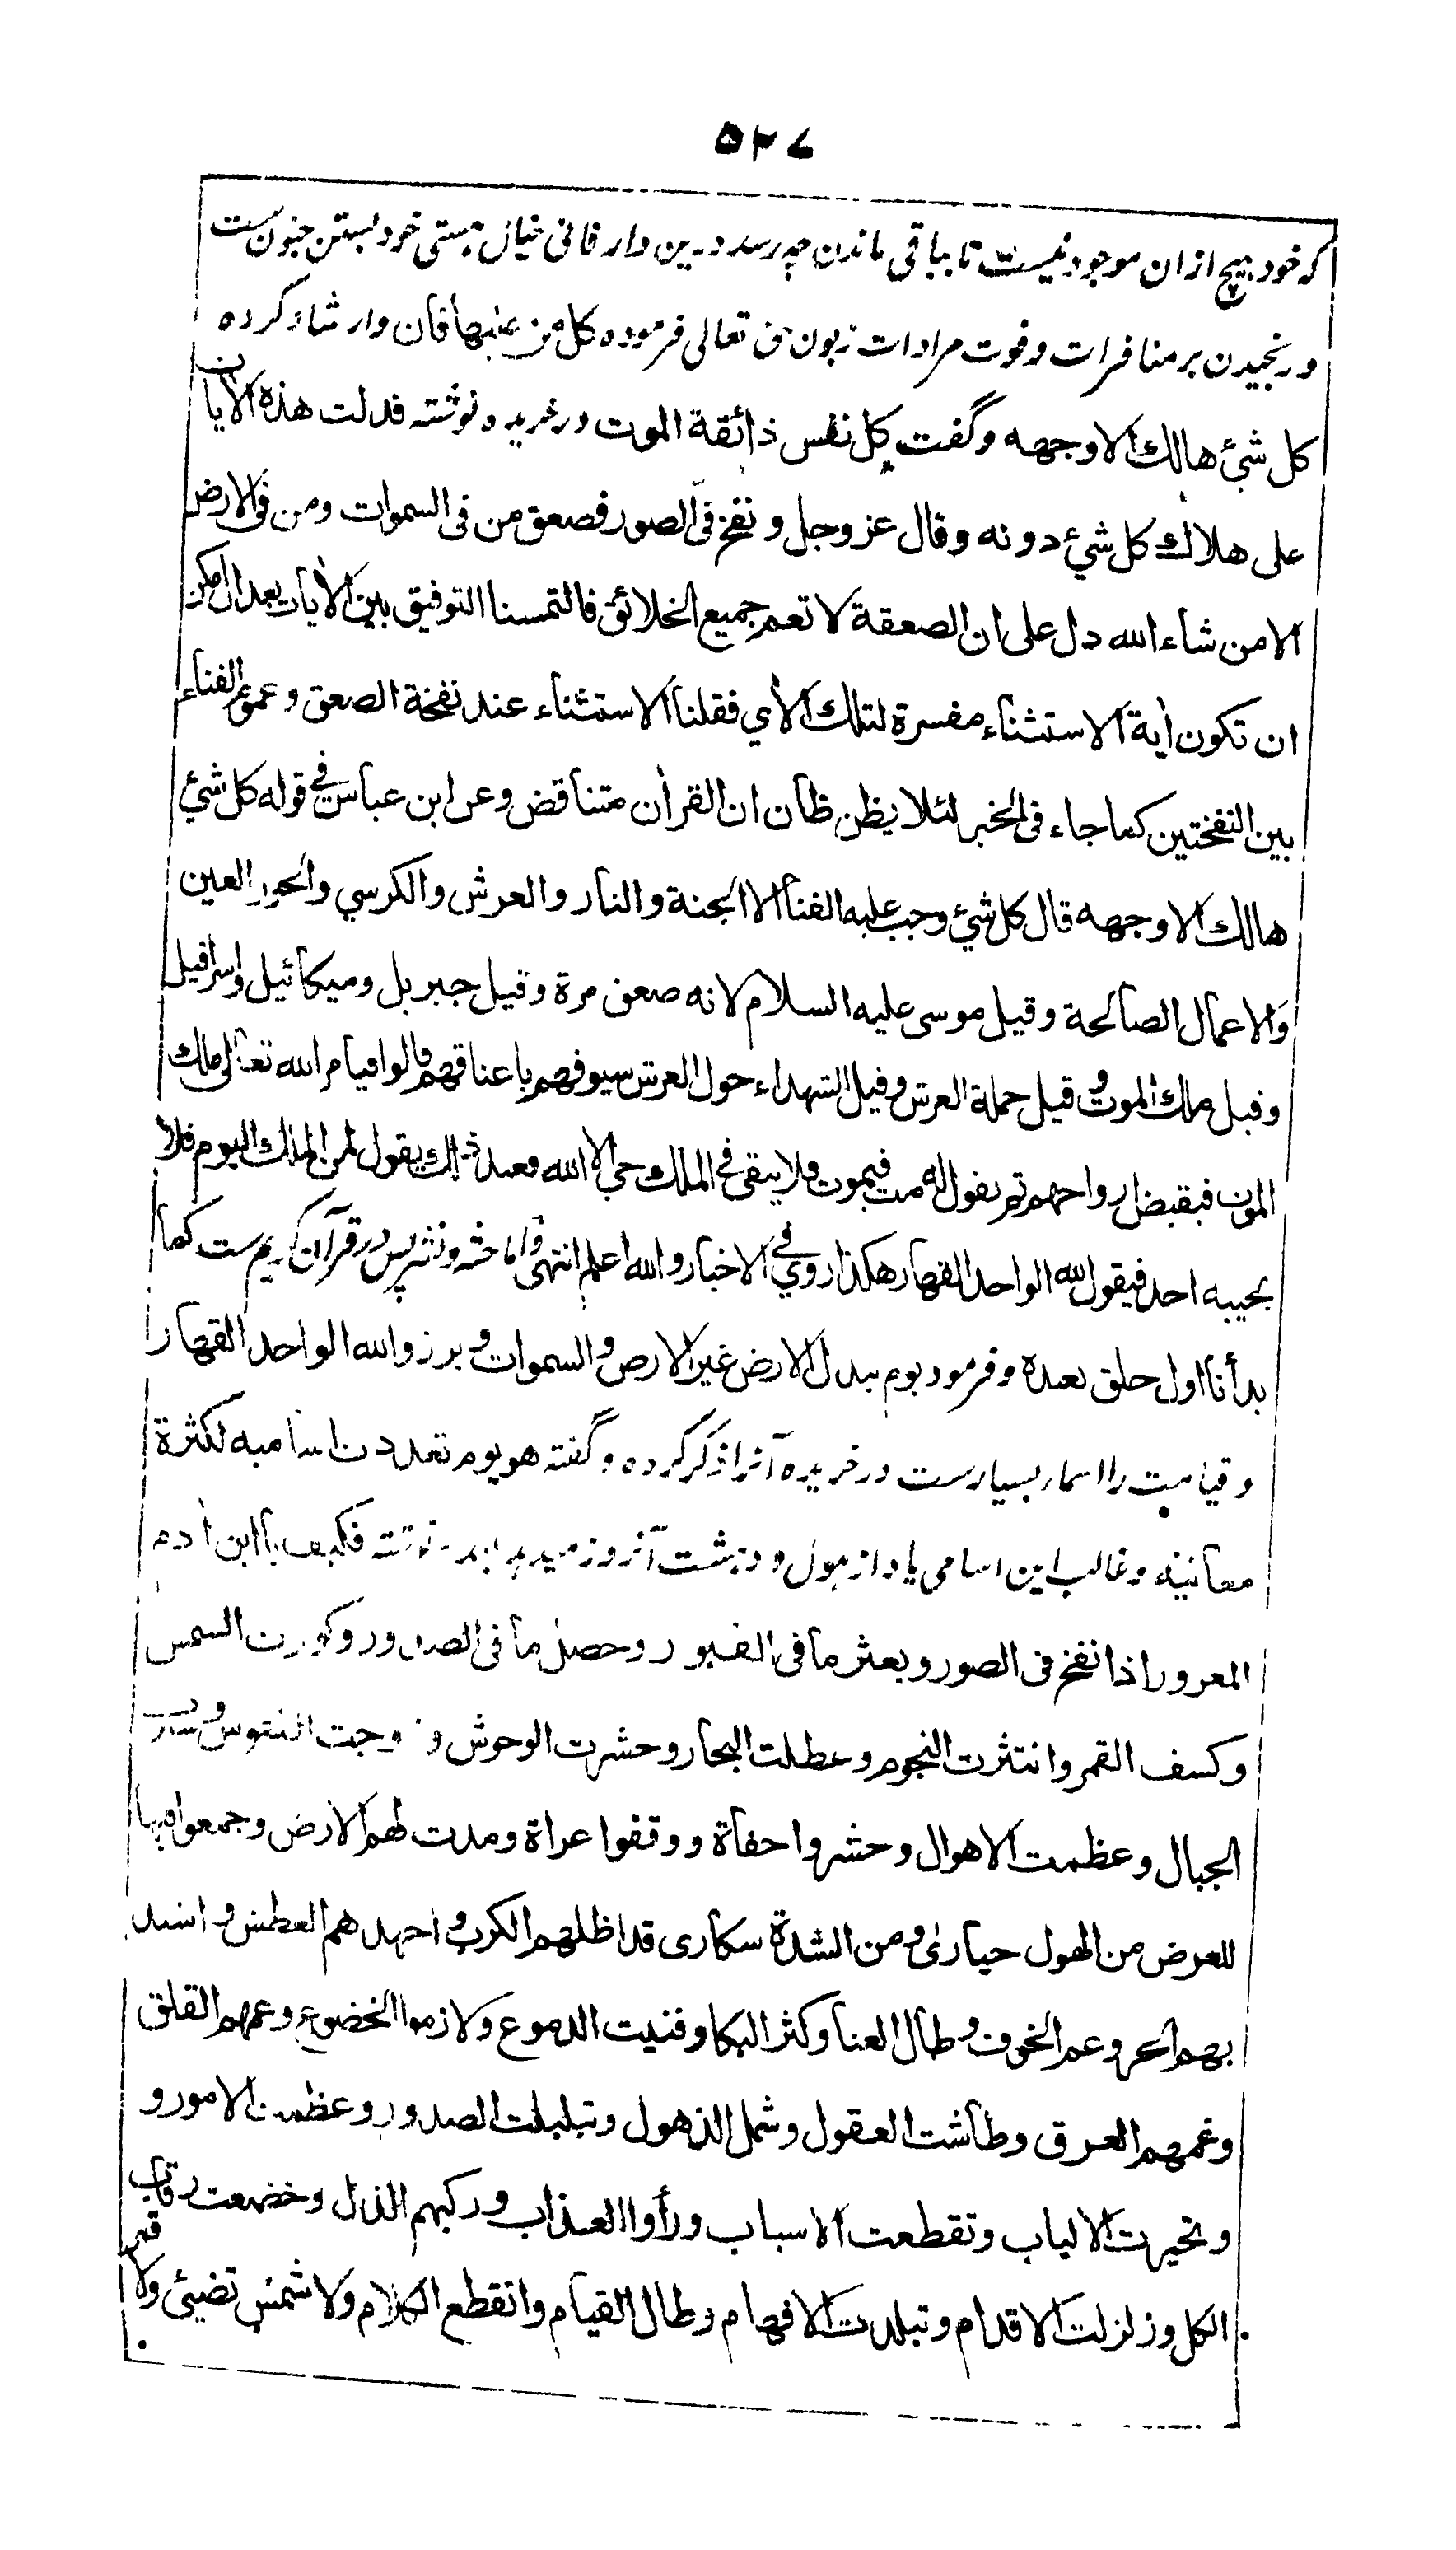 ۵۲۷
که خود هیچ ازان موجود نیست تا بباقی ماندن چه رسد درین دار فانی خیال هستی خود بستن جنون ست
و رنجیدن بر منافرات و فوت مرادات زبون حق تعالی فرموده کل من علیها فان وارشاد کرده
کل شئ هالك الا وجهه وگفت کل نفس ذائقة الموت در خریده نوشته فدلت هذه الایات
علی هلاك کل شئ دونه وقال عز وجل ونفخ فی الصور فصعق من فی السموات ومن فی الارض
الا من شاء الله دل علی ان الصعقة لا تعم جمیع الخلائق فالتمسنا التوفیق بین الایات بعد ان امکن
ان تکون أیة الاستثناء مفسرة لتلك الأي فقلنا الاستثناء عند نفخة الصعق وعموم الفناء
بین النفختین کما جاء فی الخبر لئلا یظن ظان ان القرأن متناقض وعن ابن عباس فی قوله کل شئ
هالك الا وجهه قال کل شئ وجب علیه الفنا الا الجنة والنار والعرش والکرسي والحور العین
والاعمال الصالحة وقیل موسی علیه السلام لانه صعق مرة وقیل جبریل ومیکائیل واسرافیل
وقیل ملك الموت وقیل حملة العرش وقیل الشهداء حول العرش سیوفهم باعناقهم قالوا فیامر الله تعالی ملك
الموت فیقبض ارواحهم ثم یقول له مت فیموت فلا یبقی فی الملك حی الا الله فعند ذلك یقول لمن الملك الیوم فلا
یجیبه احد فیقول لله الواحد القهار هکذا روي فی الاخبار والله اعلم انتهی واما حشر ونشر پس در قرآن کریم ست کما
بدأنا اول خلق نعیده وفرمود یوم تبدل الارض غیر الارض والسموات وبرزوا لله الواحد القهار
وقیامت را اسماء بسیارست در خریده آنرا ذکر کرده وگفته هو یوم تعددت اسامیه لکثرة
معانیه وغالب این اسامی یاد از هول ودهشت آنروز میدهد نوشته فکیف یا ابن أدم
المغرور اذا نفخ فی الصور وبعثر ما فی القبور وحصل ما فی الصدور وکورت الشمس
وکسف القمر وانتثرت النجوم وعطلت البحار وحشرت الوحوش وزوجت النفوس وسیرت
الجبال وعظمت الاهوال وحشروا حفاة ووقفوا عراة ومدت لهم الارض وجمعوا فیها
للعرض من الهول حیاری ومن الشدة سکاری قد اظلهم الکرب واجهدهم العطش واشتد
بهم الحر وعم الخوف وطال العنا وکثر البکا وفنیت الدموع ولازموا الخضوع وعمهم القلق
وغمهم العرق وطاشت العقول وشمل الذهول وتبلبلت الصدور وعظمت الامور و
وتحیرت الالباب وتقطعت الاسباب ورأوا العذاب ورکبهم الذل وخضعت رقاب
الکل وزلزلت الاقدام وتبلدت الافهام وطال القیام وانقطع الکلام ولا شمس تضیئ ولا قمر